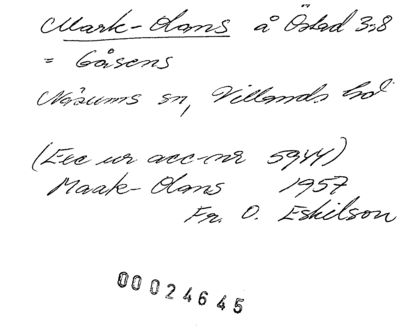 Mark-Olans å Östad 3:8
= Gåsens
Näsums sn, Villands hd
(Exc ur acc-nr 5944)
Maak-Olans 1957
Fr. O. Eskilson
00024645